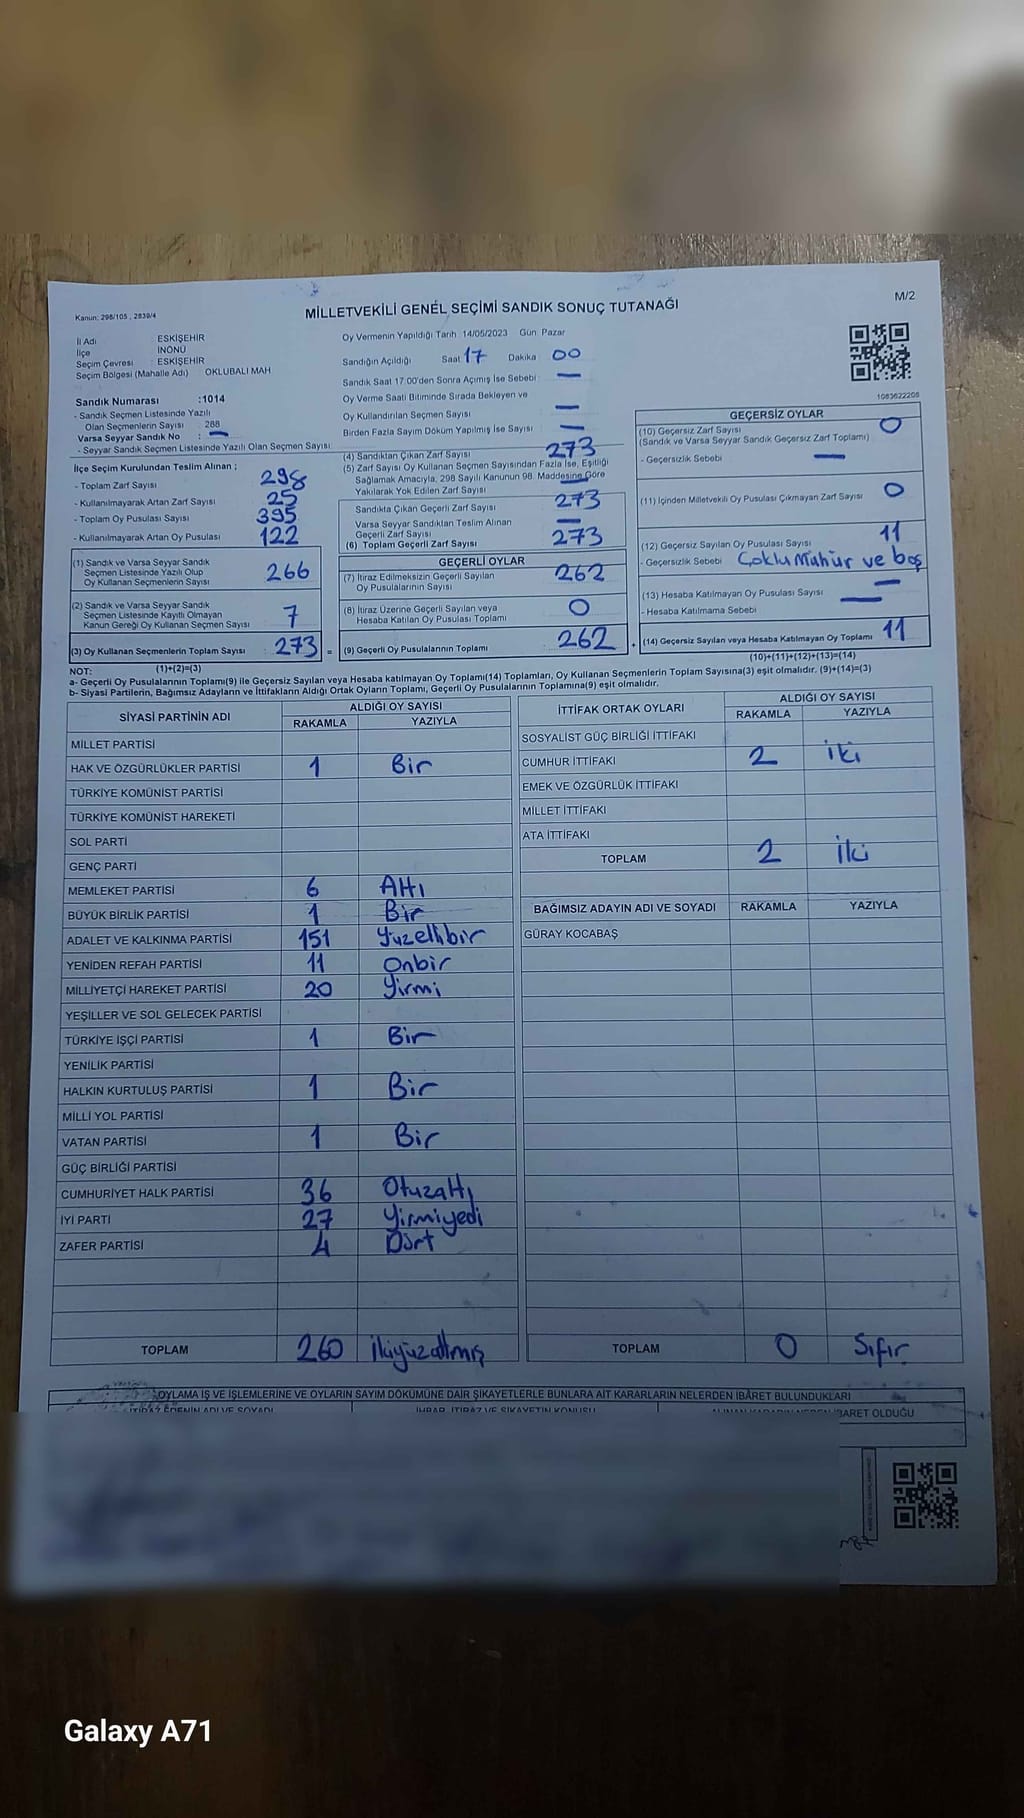 M/2
Kanun: 298/105, 2839/4
MİLLETVEKİLİ GENEL SEÇİMİ SANDIK SONUÇ TUTANAĞI
İl Adı ESKİŞEHİR
İlçe İNÖNÜ
Seçim Çevresi : ESKİŞEHİR
Seçim Bölgesi (Mahalle Adı) OKLUBALI MAH
Oy Vermenin Yapıldığı Tarih 14/05/2023 Gün Pazar
Sandığın Açıldığı Saat 17 Dakika 00
Sandık Saat 17:00'den Sonra Açımış İse Sebebi : —
Oy Verme Saati Bitiminde Sırada Bekleyen ve
Oy Kullandırılan Seçmen Sayısı —
Birden Fazla Sayım Döküm Yapılmış İse Sayısı —
1083622208
Sandık Numarası :1014
- Sandık Seçmen Listesinde Yazılı
Olan Seçmenlerin Sayısı 288
Varsa Seyyar Sandık No : —
- Seyyar Sandık Seçmen Listesinde Yazılı Olan Seçmen Sayısı:
İlçe Seçim Kurulundan Teslim Alınan ;
- Toplam Zarf Sayısı 298
- Kullanılmayarak Artan Zarf Sayısı 25
- Toplam Oy Pusulası Sayısı 395
- Kullanılmayarak Artan Oy Pusulası 122
(1) Sandık ve Varsa Seyyar Sandık
Seçmen Listesinde Yazılı Olup
Oy Kullanan Seçmenlerin Sayısı 266
(2) Sandık ve Varsa Seyyar Sandık
Seçmen Listesinde Kayıtlı Olmayan
Kanun Gereği Oy Kullanan Seçmen Sayısı 7
(3) Oy Kullanan Seçmenlerin Toplam Sayısı 273 =
(1)+(2)=(3)
(4) Sandıktan Çıkan Zarf Sayısı 273
(5) Zarf Sayısı Oy Kullanan Seçmen Sayısından Fazla İse, Eşitliği
Sağlamak Amacıyla, 298 Sayılı Kanunun 98. Maddesine Göre
Yakılarak Yok Edilen Zarf Sayısı —
Sandıkta Çıkan Geçerli Zarf Sayısı 273
Varsa Seyyar Sandıktan Teslim Alınan
Geçerli Zarf Sayısı —
(6) Toplam Geçerli Zarf Sayısı 273
GEÇERLİ OYLAR
(7) İtiraz Edilmeksizin Geçerli Sayılan
Oy Pusulalarının Sayısı 262
(8) İtiraz Üzerine Geçerli Sayılan veya
Hesaba Katılan Oy Pusulası Toplamı 0
(9) Geçerli Oy Pusulalarının Toplamı 262 +
GEÇERSİZ OYLAR
(10) Geçersiz Zarf Sayısı
(Sandık ve Varsa Seyyar Sandık Geçersiz Zarf Toplamı) 0
- Geçersizlik Sebebi —
(11) İçinden Milletvekili Oy Pusulası Çıkmayan Zarf Sayısı 0
(12) Geçersiz Sayılan Oy Pusulası Sayısı 11
- Geçersizlik Sebebi Çoklu Mühür ve boş
(13) Hesaba Katılmayan Oy Pusulası Sayısı —
- Hesaba Katılmama Sebebi —
(14) Geçersiz Sayılan veya Hesaba Katılmayan Oy Toplamı 11
(10)+(11)+(12)+(13)=(14)
NOT:
a- Geçerli Oy Pusulalarının Toplamı(9) ile Geçersiz Sayılan veya Hesaba Katılmayan Oy Toplamı(14) Toplamları, Oy Kullanan Seçmenlerin Toplam Sayısına(3) eşit olmalıdır. (9)+(14)=(3)
b- Siyasi Partilerin, Bağımsız Adayların ve İttifakların Aldığı Ortak Oyların Toplamı, Geçerli Oy Pusulalarının Toplamına(9) eşit olmalıdır.
SİYASİ PARTİNİN ADI ALDIĞI OY SAYISI
RAKAMLA YAZIYLA
MİLLET PARTİSİ
HAK VE ÖZGÜRLÜKLER PARTİSİ 1 Bir
TÜRKİYE KOMÜNİST PARTİSİ
TÜRKİYE KOMÜNİST HAREKETİ
SOL PARTİ
GENÇ PARTİ
MEMLEKET PARTİSİ 6 Altı
BÜYÜK BİRLİK PARTİSİ 1 Bir
ADALET VE KALKINMA PARTİSİ 151 Yüzellibir
YENİDEN REFAH PARTİSİ 11 Onbir
MİLLİYETÇİ HAREKET PARTİSİ 20 Yirmi
YEŞİLLER VE SOL GELECEK PARTİSİ
TÜRKİYE İŞÇİ PARTİSİ 1 Bir
YENİLİK PARTİSİ
HALKIN KURTULUŞ PARTİSİ 1 Bir
MİLLİ YOL PARTİSİ
VATAN PARTİSİ 1 Bir
GÜÇ BİRLİĞİ PARTİSİ
CUMHURİYET HALK PARTİSİ 36 Otuzaltı
İYİ PARTİ 27 Yirmiyedi
ZAFER PARTİSİ 4 Dört
TOPLAM 260 ikiyüzaltmış
İTTİFAK ORTAK OYLARI ALDIĞI OY SAYISI
RAKAMLA YAZIYLA
SOSYALİST GÜÇ BİRLİĞİ İTTİFAKI
CUMHUR İTTİFAKI 2 iki
EMEK VE ÖZGÜRLÜK İTTİFAKI
MİLLET İTTİFAKI
ATA İTTİFAKI
TOPLAM 2 iki
BAĞIMSIZ ADAYIN ADI VE SOYADI RAKAMLA YAZIYLA
GÜRAY KOCABAŞ
TOPLAM 0 Sıfır
OYLAMA İŞ VE İŞLEMLERİNE VE OYLARIN SAYIM DÖKÜMÜNE DAİR ŞİKAYETLERLE BUNLARA AİT KARARLARIN NELERDEN İBARET BULUNDUKLARI
İTİRAZ EDENİN ADI VE SOYADI İHBAR, İTİRAZ VE ŞİKAYETİN KONUSU ALINAN KARARIN NEDEN İBARET OLDUĞU
Galaxy A71